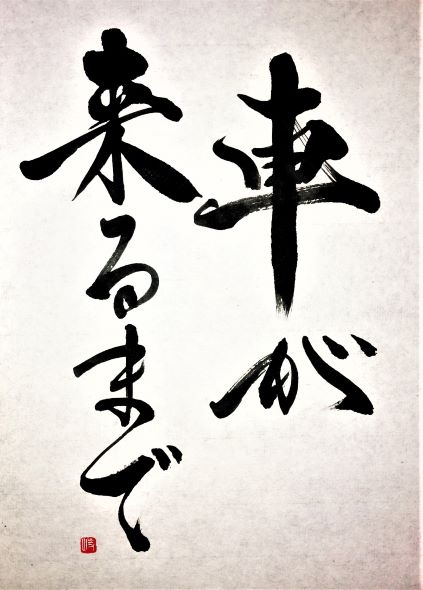 車が
来るまで